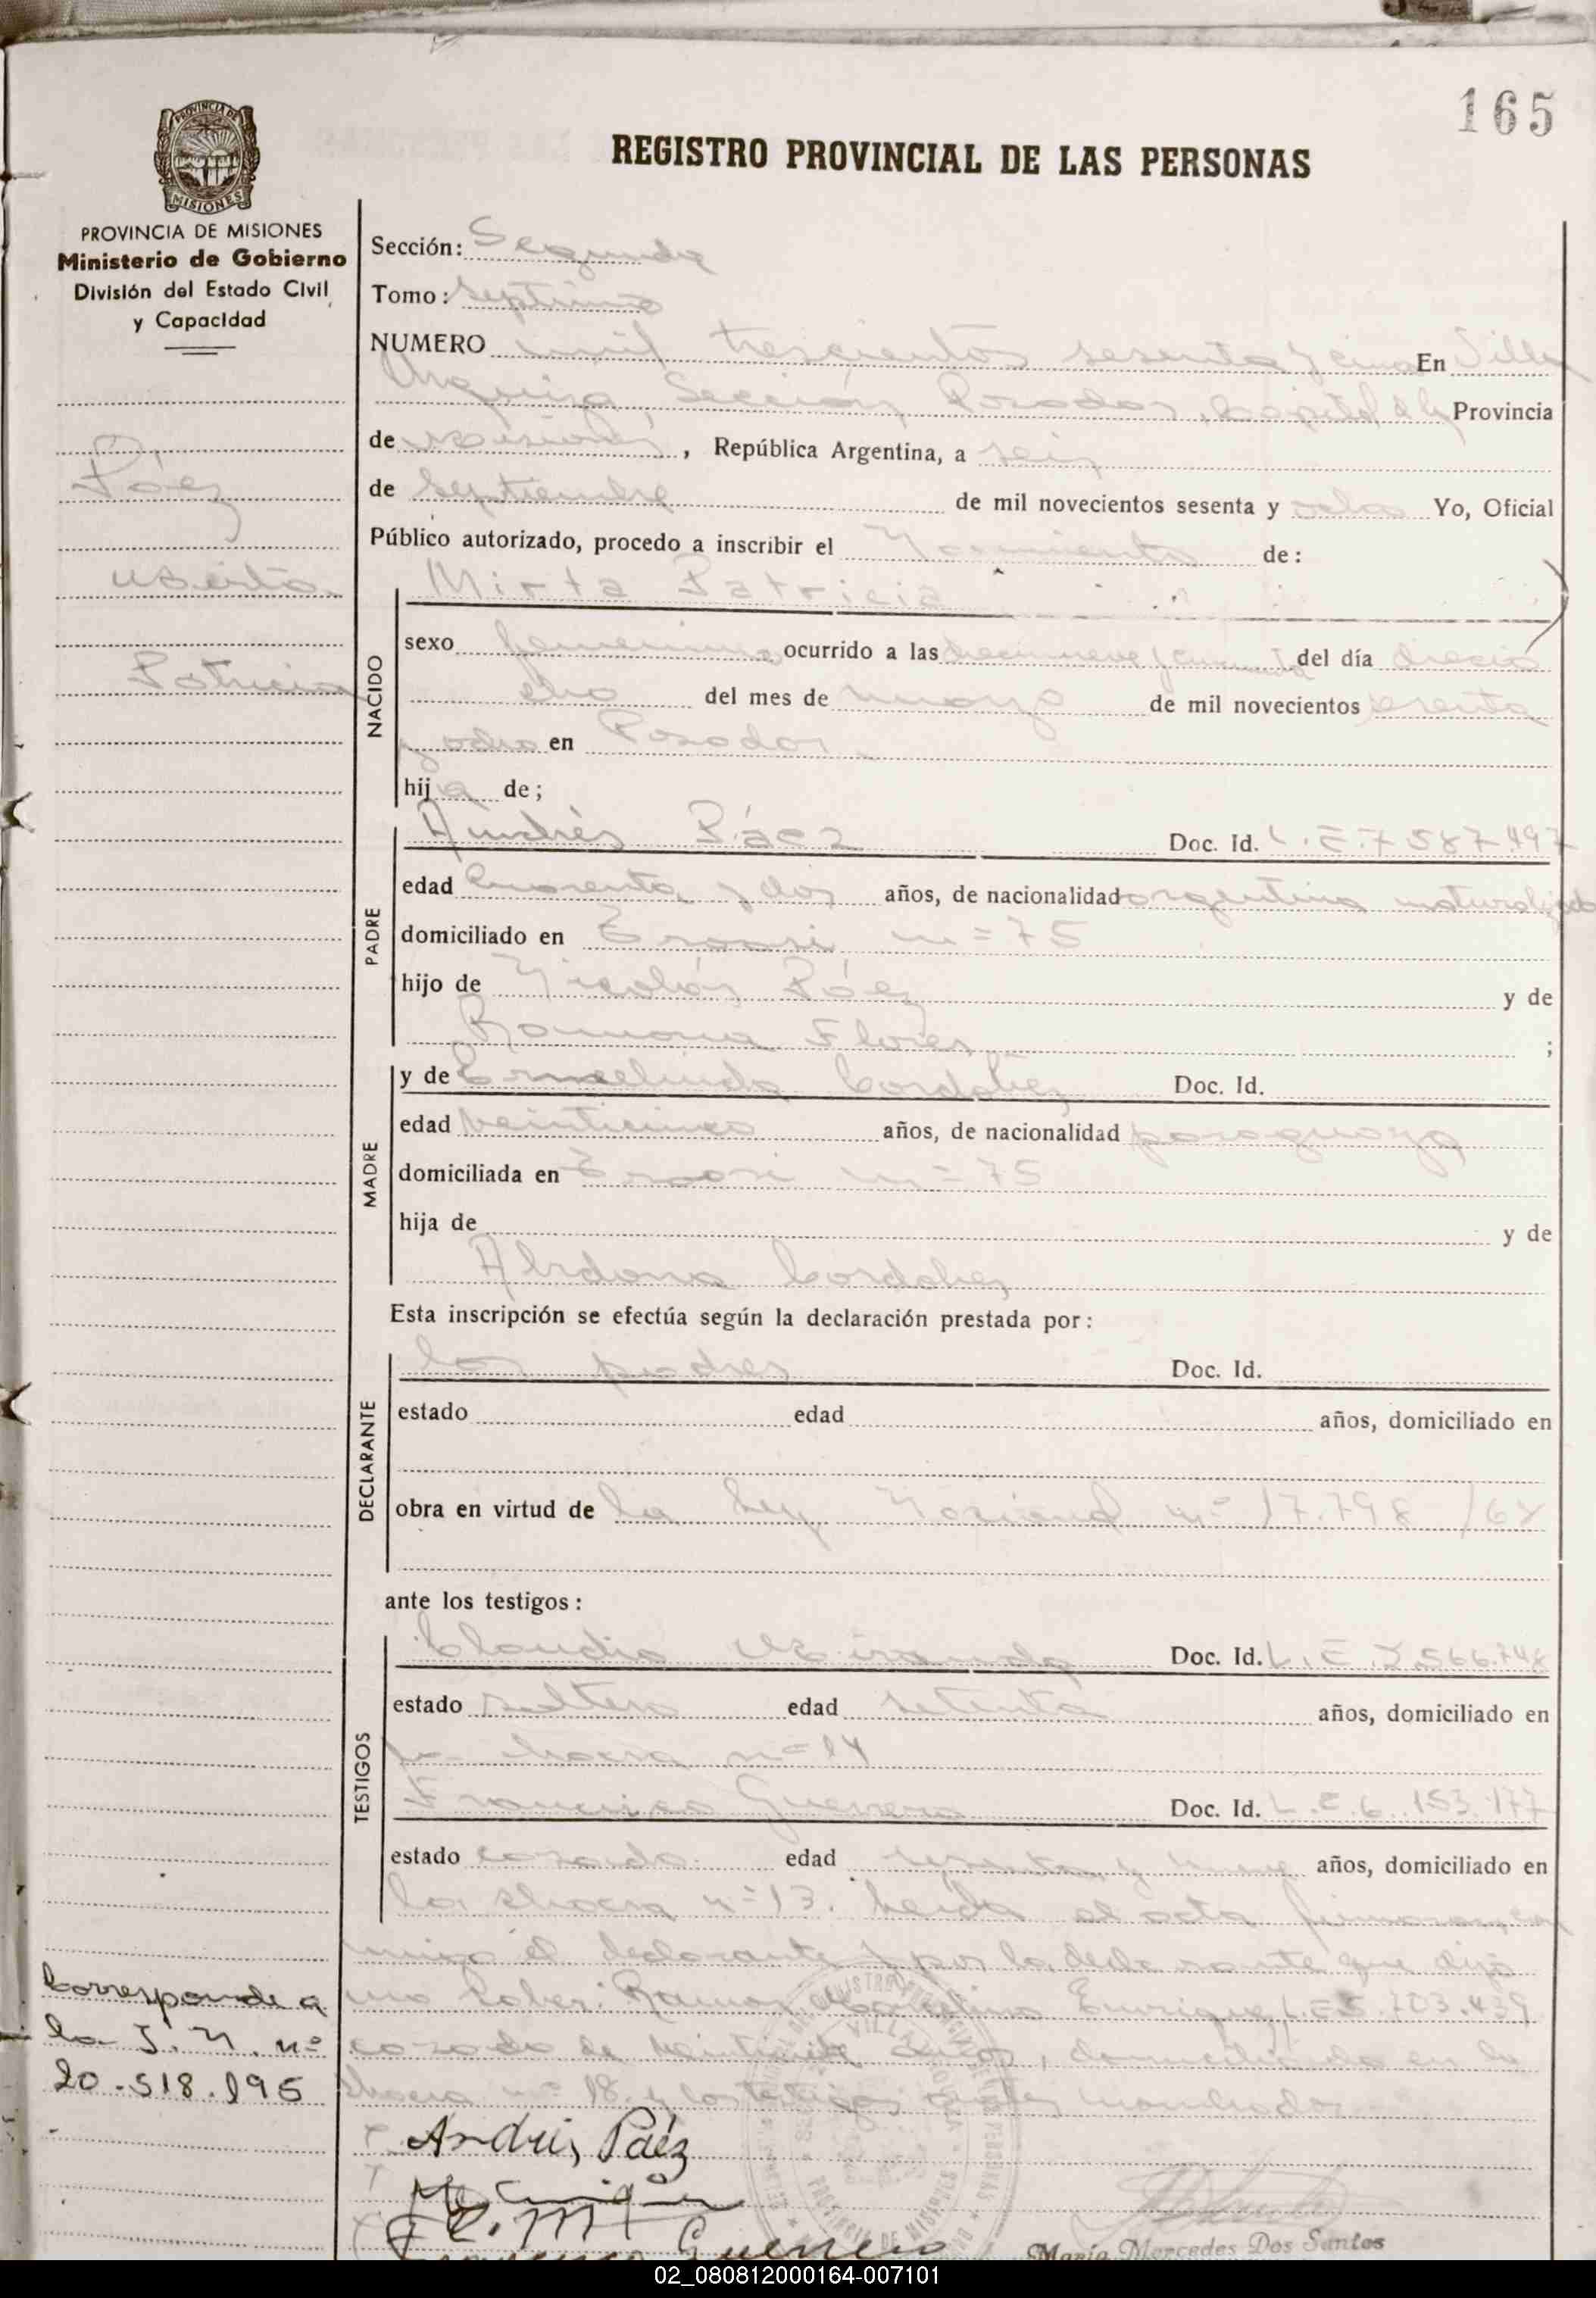 165
REGISTRO PROVINCIAL DE LAS PERSONAS
PROVINCIA DE MISIONES
PROVINCIA DE MISIONES
Ministerio de Gobierno
División del Estado Civil
y Capacidad
Páez
Mirta
Patricia
Corresponde a
la I. N. nº
20.518.195
Sección: Segunda
Tomo: Septimo
NUMERO mil trescientos sesenta y cinco En Villa
Urquiza, Sección Posadas, Capital de la Provincia
de Misiones, República Argentina, a seis
de Septiembre de mil novecientos sesenta y ocho Yo, Oficial
Público autorizado, procedo a inscribir el Nacimiento de:
NACIDO
Mirta Patricia
sexo femenino ocurrido a las del día diecio
cho del mes de mayo de mil novecientos sesenta
y ocho en Posadas
hija de;
PADRE
Andrés Páez Doc. Id. L.E.7587497
edad Cuarenta y dos años, de nacionalidad argentino naturalizado
domiciliado en nº 75
hijo de Nicolás Páez y de
Ramona Flores ;
MADRE
y de Ermelinda Cordobez Doc. Id.
edad veinticinco años, de nacionalidad paraguaya
domiciliada en nº 75
hija de y de
Aldona Cordobez
Esta inscripción se efectúa según la declaración prestada por:
DECLARANTE
los padres Doc. Id.
estado edad años, domiciliado en
obra en virtud de la Ley Nacional nº 17.798/68
ante los testigos:
TESTIGOS
Claudio Miranda Doc. Id. L.E. 3.566.748
estado soltero edad setenta años, domiciliado en
la chacra nº 14
Francisco Guerrero Doc. Id. L.E.6.153.177
estado casado edad sesenta y nueve años, domiciliado en
la chacra nº 13. Leída el acta firmaron con
migo el declarante y por la declarante que dijo
no saber: Ramón Marcelino Enriquez L.E 5.703.439
casado de veintisiete años, domiciliado en la
chacra nº 18 y los testigos antes nombrados
Andrés Páez
Francisco Guerrero
María Mercedes Dos Santos
02_080812000164-007101